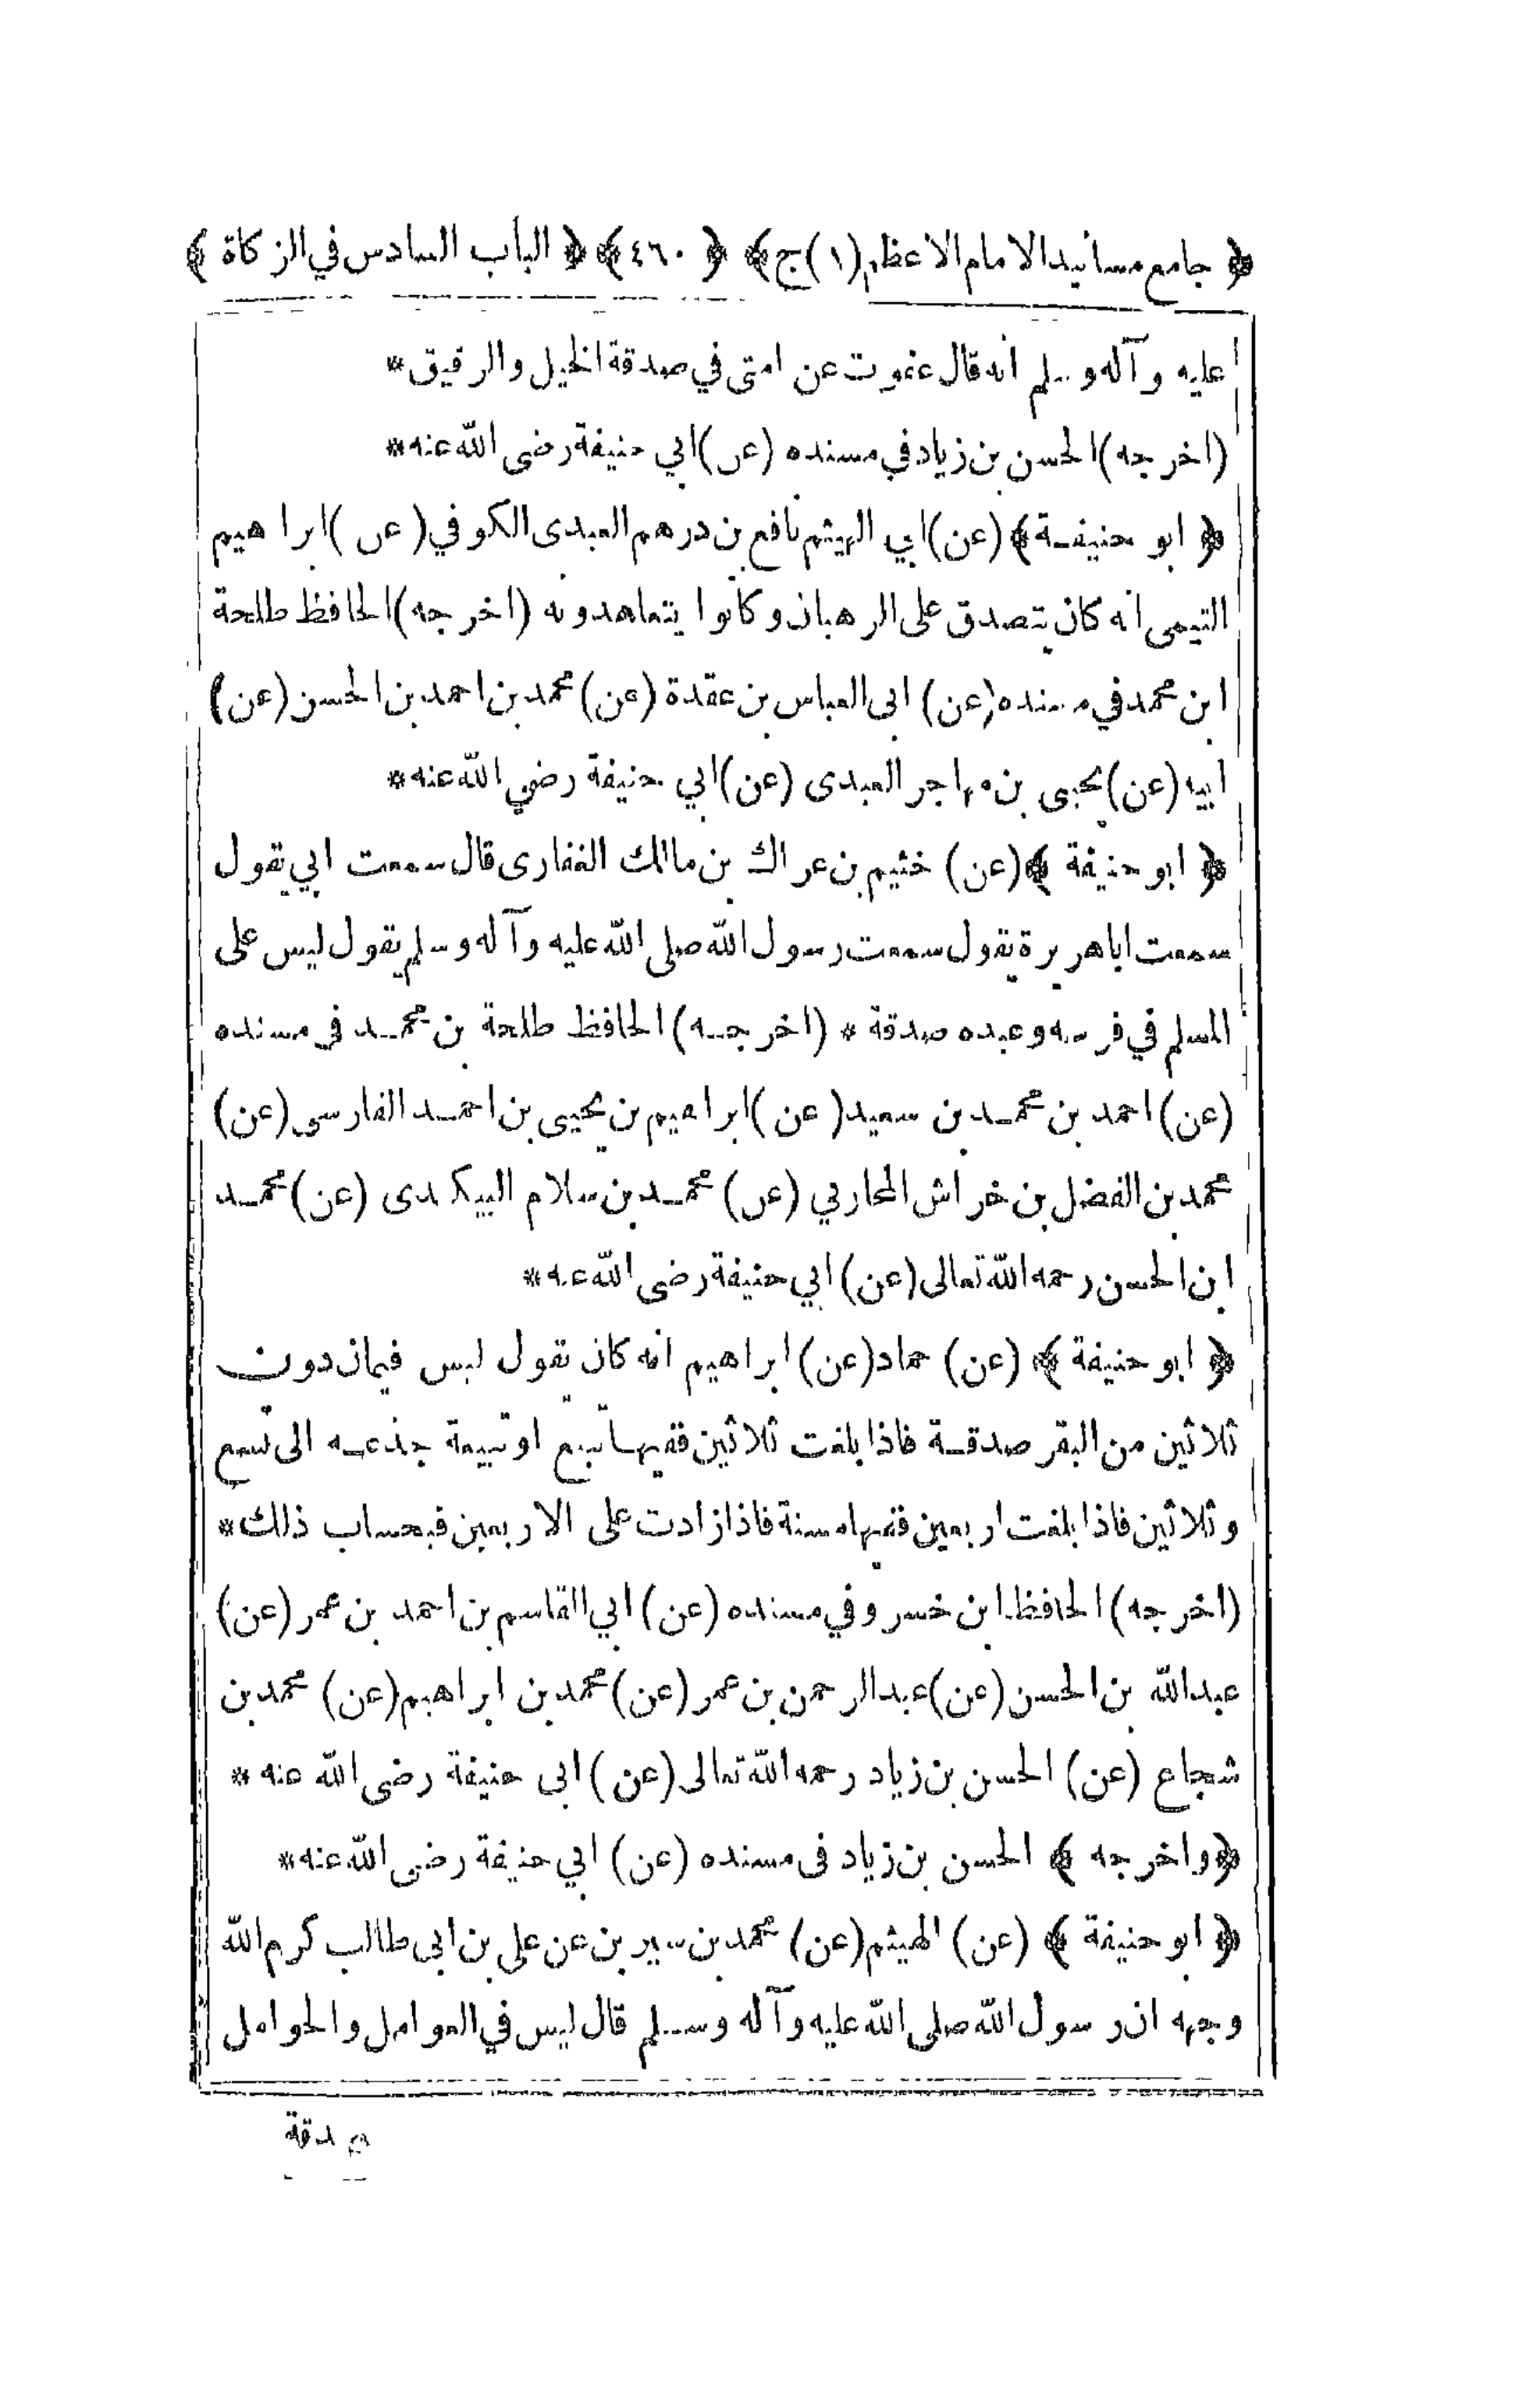 ﴿ جامع مسانيد الامام الاعظم (١) ج ﴾ ﴿ ٤٦٠ ﴾ ﴿ الباب السادس في الزكاة ﴾
عليه وآله وسلم انه قال عفوت عن امتى في صدقة الخيل والرقيق *
(اخرجه) الحسن بن زياد في مسنده (عن) ابي حنيفة رضى الله عنه *
﴿ ابو حنيفة ﴾ (عن) ابي الهيثم نافع بن درهم العبدى الكوفي (عن) ابراهيم
التيمى انه كان يتصدق على الرهبان وكانوا يتعاهدونه (اخرجه) الحافظ طلحة
ابن محمد في مسنده (عن) ابى العباس بن عقدة (عن) محمد بن احمد بن الحسن (عن)
ابيه (عن) يحيى بن مهاجر العبدى (عن) ابي حنيفة رضي الله عنه *
﴿ ابو حنيفة ﴾ (عن) خثيم بن عراك بن مالك الغفارى قال سمعت ابي يقول
سمعت اباهريرة يقول سمعت رسول الله صلى الله عليه وآله وسلم يقول ليس على
المسلم في فرسه وعبده صدقة * (اخرجه) الحافظ طلحة بن محمد فى مسنده
(عن) احمد بن محمد بن سعيد (عن) ابراهيم بن يحيى بن احمد الفارسى (عن)
محمد بن الفضل بن خراش المحاربي (عن) محمد بن سلام البيكندى (عن) محمد
ابن الحسن رحمه الله تعالى (عن) ابي حنيفة رضى الله عنه *
﴿ ابو حنيفة ﴾ (عن) حماد (عن) ابراهيم انه كان يقول ليس فيمان دون
ثلاثين من البقر صدقة فاذا بلغت ثلاثين ففيها تبيع او تبيعة جذعه الى تسع
وثلاثين فاذا بلغت اربعين ففيها مسنة فاذا زادت على الاربعين فبحساب ذلك *
(اخرجه) الحافظ ابن خسرو في مسنده (عن) ابي القاسم بن احمد بن عمر (عن)
عبدالله بن الحسن (عن) عبدالرحمن بن عمر (عن) محمد بن ابراهيم (عن) محمد بن
شجاع (عن) الحسن بن زياد رحمه الله تعالى (عن) ابى حنيفة رضى الله عنه *
﴿ واخرجه ﴾ الحسن بن زياد فى مسنده (عن) ابي حنيفة رضى الله عنه *
﴿ ابو حنيفة ﴾ (عن) الهيثم (عن) محمد بن سيرين عن على بن ابى طالب كرم الله
وجهه ان رسول الله صلى الله عليه وآله وسلم قال ليس في العوامل والحوامل
صدقة